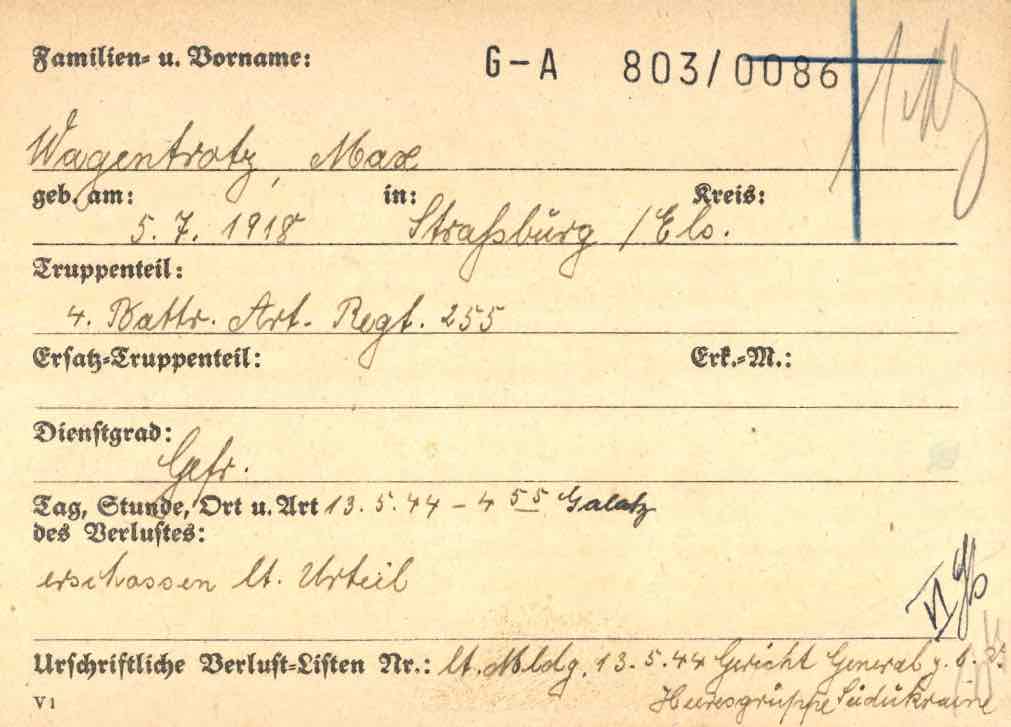 Familien- u. Vorname: G-A 803/0086
Wagentrotz, Max
geb. am: in: Kreis:
5. 7. 1918 Straßburg / Els.
Truppenteil:
4. Battr. Art. Regt. 255
Ersatz-Truppenteil: Erk.-M.:
Dienstgrad:
Gefr.
Tag, Stunde, Ort u. Art 13. 5. 44 - 4 55 Galatz
des Verlustes:
erschossen lt. Urteil
Urschriftliche Verlust-Listen Nr.: lt. Mldg. 13. 5. 44 Gericht General z. b. V.
V 1 Heeresgruppe Südukraine